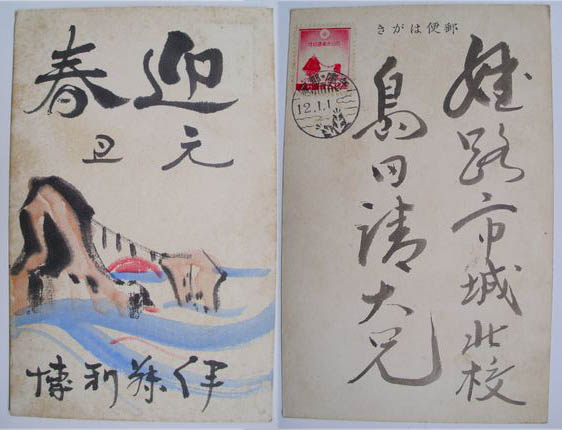 迎春
元旦
伊藤利博
郵便はがき
12.1.1
姫路市城北校
島田清大兄